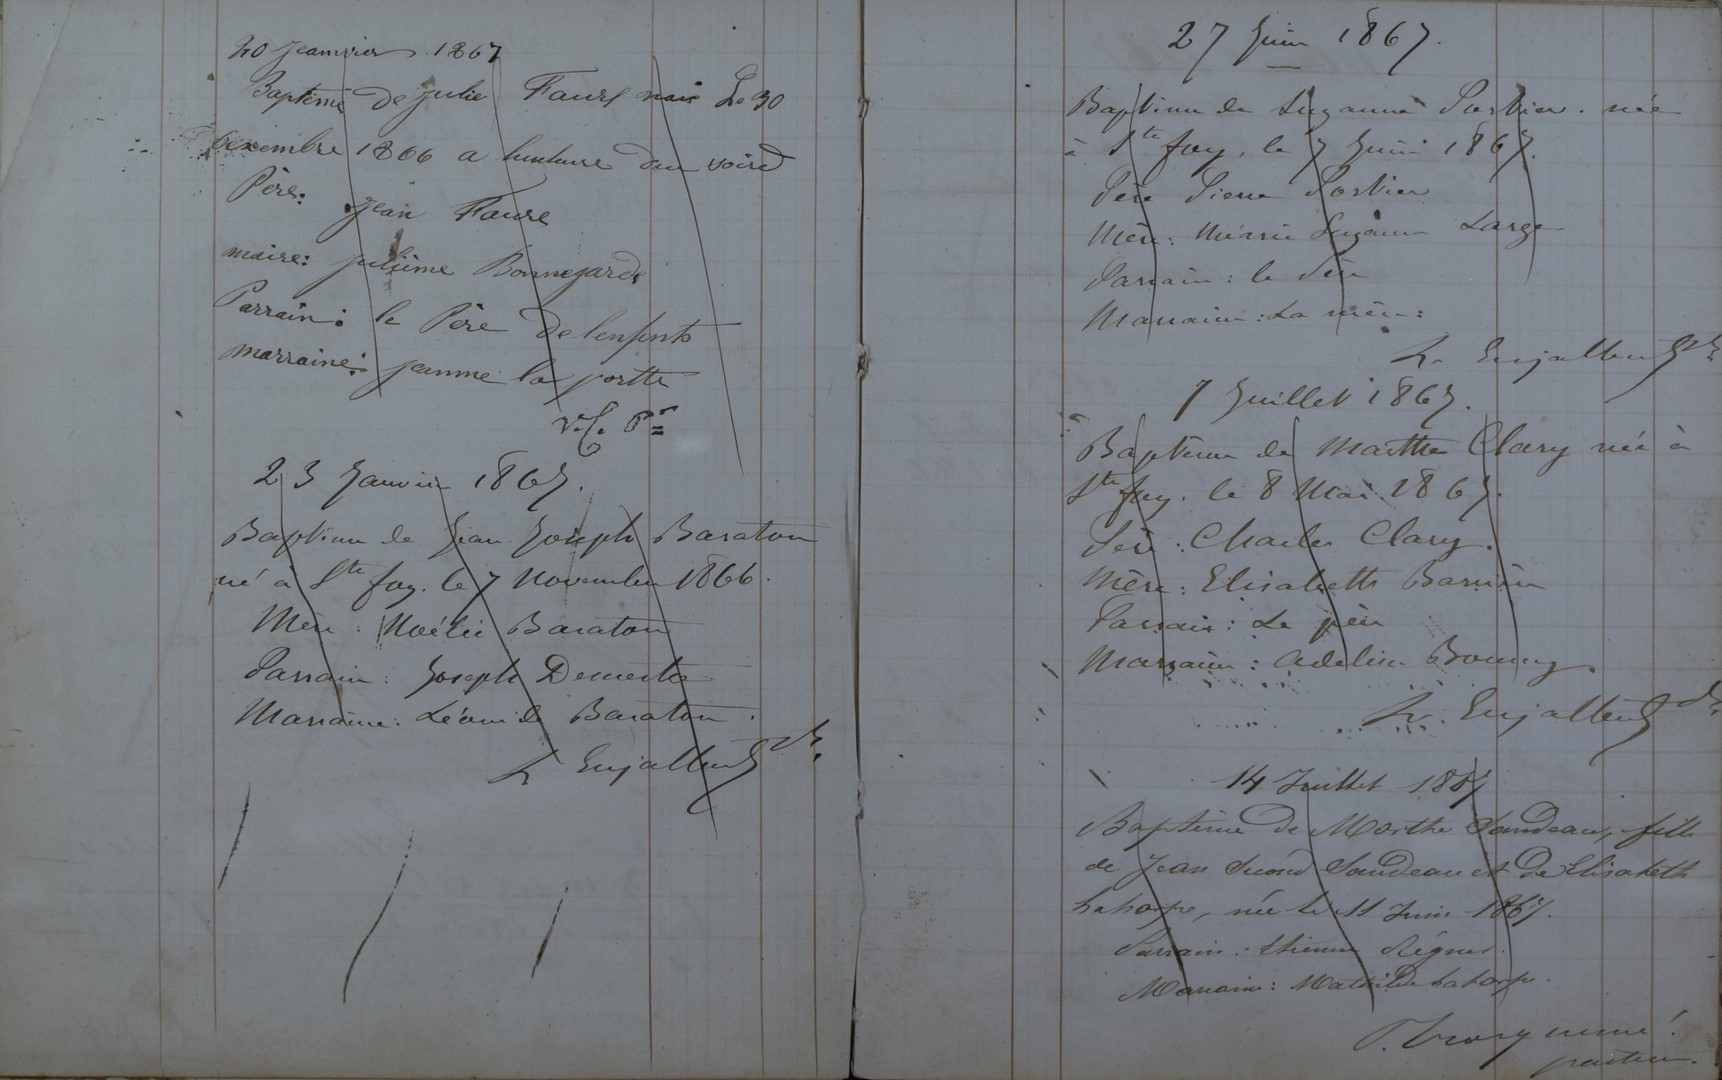 20 Jeanvier 1867
Bapteme de julie Faure nais Le 30
Decembre 1866 a huheure du soired
Père: jean Faure
maire: Bonnegarde
Parrain: le Père de lenfents
marraine: jeanne la portte
23 Janvier 1867.
Baptême de Jean Joseph Baraton
né à Ste foy. le 7 Novembre 1866.
Mère: Noélie Baraton
Parrain: Joseph Demestre
Marraine: Léonide Baraton.
Enjalbert
27 Juin 1867.
Baptême de Suzanne Portier. née
à Ste foy, le 7 Juin 1867.
Père Pierre Portier
Mère: Marie Suzanne Large
Parrain: le Père
Marraine: La mère:
Enjalbert
7 Juillet 1867.
Baptême de Marthe Clary née à
Ste foy. le 8 Mai 1867.
Père: Charles Clary.
Mère: Elisabeth Barrière
Parrain: Le père
Marraine: Adeline
Enjalbert
14 Juillet 1867
Baptême de Marthe Sandeau, fille
de Jean Second Sandeau et de Elisabeth
Laharpe, née le 11 Juin 1867.
Parrain: Etienne Régner.
Marraine: Mathilde Laharpe.
pasteur.